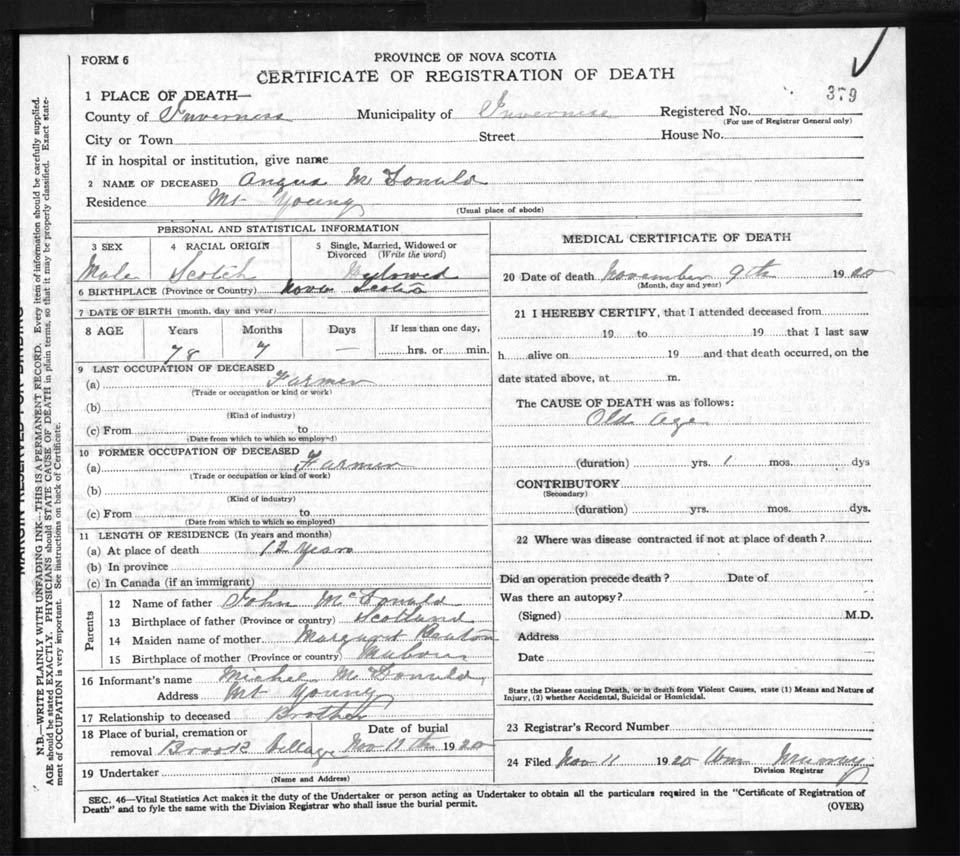 FORM 6
PROVINCE OF NOVA SCOTIA
CERTIFICATE OF REGISTRATION OF DEATH
379
1 PLACE OF DEATH—
County of Inverness Municipality of Inverness Registered No.
(For use of Registrar General only)
City or Town Street House No.
If in hospital or institution, give name
2 NAME OF DECEASED Angus McDonald
Residence Mt Young
(Usual place of abode)
PERSONAL AND STATISTICAL INFORMATION
3 SEX 4 RACIAL ORIGIN 5 Single, Married, Widowed or Divorced (Write the word)
Male Scotch Widowed
6 BIRTHPLACE (Province or Country) Nova Scotia
7 DATE OF BIRTH (month, day and year)
8 AGE Years Months Days If less than one day,
78 7 — hrs. or min.
9 LAST OCCUPATION OF DECEASED
(a) Farmer
(Trade or occupation or kind or work)
(b)
(Kind of industry)
(c) From to
(Date from which to which so employed)
10 FORMER OCCUPATION OF DECEASED
(a) Farmer
(Trade or occupation or kind of work)
(b)
(Kind of industry)
(c) From to
(Date from which to which so employed)
11 LENGTH OF RESIDENCE (In years and months)
(a) At place of death 12 Years
(b) In province
(c) In Canada (if an immigrant)
Parents
12 Name of father John McDonald
13 Birthplace of father (Province or country) Scotland
14 Maiden name of mother Margaret
15 Birthplace of mother (Province or country) Mabou
16 Informant's name Michel McDonald
Address Mt Young
17 Relationship to deceased Brother
18 Place of burial, cremation or Date of burial
removal Brook Village Nov 11th 1920
19 Undertaker
(Name and Address)
MEDICAL CERTIFICATE OF DEATH
20 Date of death November 9th 1920
(Month, day and year)
21 I HEREBY CERTIFY, that I attended deceased from
19 to 19 that I last saw
h alive on 19 and that death occurred, on the
date stated above, at m.
The CAUSE OF DEATH was as follows:
Old age
(duration) yrs. 1 mos. dys
CONTRIBUTORY
(Secondary)
(duration) yrs. mos. dys.
22 Where was disease contracted if not at place of death?
Did an operation precede death? Date of
Was there an autopsy?
(Signed) M.D.
Address
Date
State the Disease causing Death, or in death from Violent Causes, state (1) Means and Nature of
Injury, (2) whether Accidental, Suicidal or Homicidal.
23 Registrar's Record Number
24 Filed Nov 11 1920 Wm Murray
Division Registrar
SEC. 46—Vital Statistics Act makes it the duty of the Undertaker or person acting as Undertaker to obtain all the particulars required in the "Certificate of Registration of
Death" and to fyle the same with the Division Registrar who shall issue the burial permit.
(OVER)
MARGIN RESERVED FOR BINDING
N.B.—WRITE PLAINLY WITH UNFADING INK—THIS IS A PERMANENT RECORD. Every item of information should be carefully supplied.
AGE should be stated EXACTLY. PHYSICIANS should STATE CAUSE OF DEATH in plain terms, so that it may be properly classified. Exact state-
ment of OCCUPATION is very important. See instructions on back of Certificate.